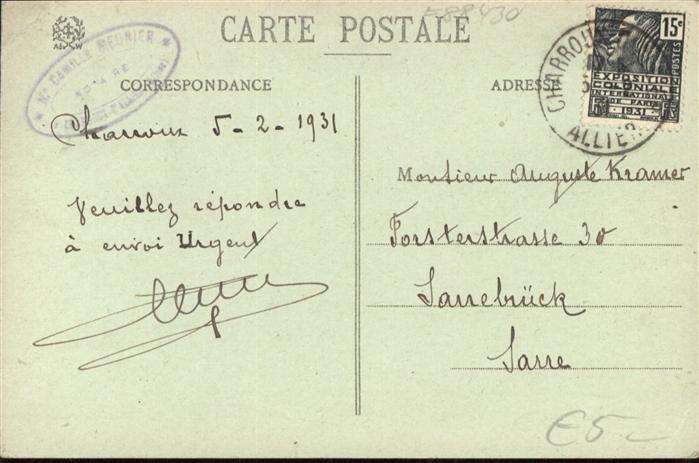 CARTE POSTALE
CORRESPONDANCE
ADRESSE
Me CAMILLE MEUNIER
NOTAIRE
15c
POSTES
EXPOSITION
COLONIALE
INTERNATIONALE
DE PARIS
1931
CHARROUX
ALLIER
Charroux 5-2-1931
Veuillez répondre
à envoi Urgent
Monsieur Auguste Kramer
Forsterstrasse 30
Sarrebrück
Sarre
€5-